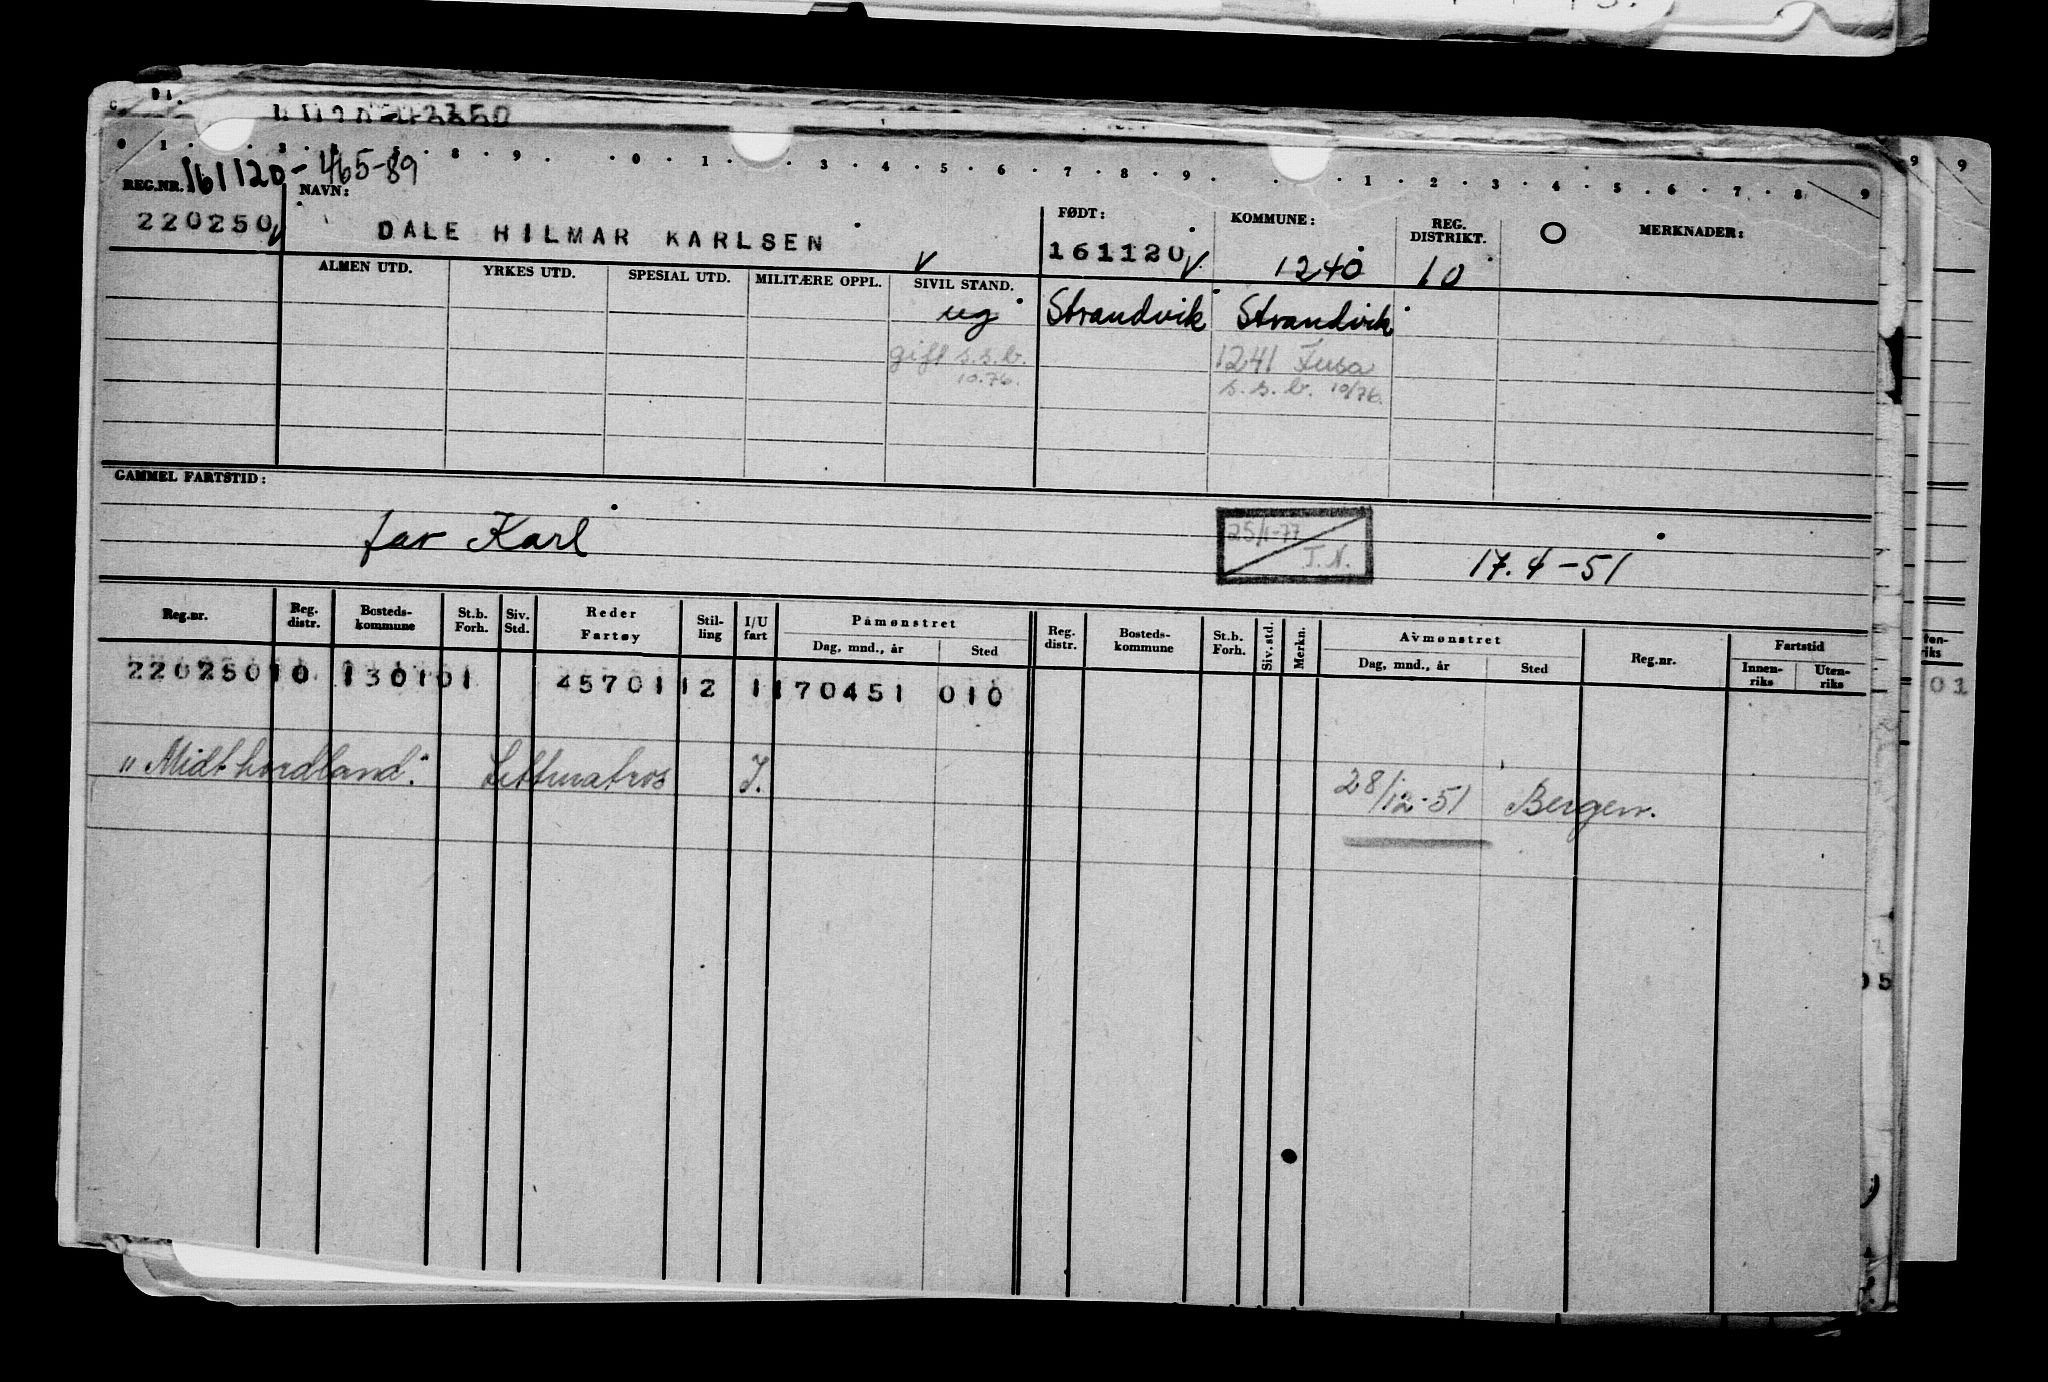 0 1 . . 3 . 4 . 5 . 8 . 9 . . 0 . 1 . . 3 . 4 . 5 . 6 . 7 . 8 . 9 . . . 1 . 2 . 3 . 4 . 5 . 6 . 7 . 8 . 9
161120-465-89
REG.NR. NAVN: FØDT: KOMMUNE: REG. DISTRIKT. MERKNADER:
220250 DALE HILMAR KARLSEN 161120 1240 10
ALMEN UTD. YRKES UTD. SPESIAL UTD. MILITÆRE OPPL. SIVIL STAND.
ug Strandvik Strandvik
gift s.s.b. 1241 Fusa
10.76. s.s.b. 10/76.
GAMMEL FARTSTID:
far Karl 25/1-77 I.N. 17.4-51
Reg.nr. Reg. distr. Bosteds-kommune St.b. Forh. Siv. Std. Reder Fartøy Stil-ling I/U fart Påmønstret Reg. distr. Bosteds-kommune St.b. Forh. Siv. std. Merkn. Avmønstret Reg.nr. Fartstid
Dag, mnd., år Sted Dag, mnd., år Sted Innen-riks Uten-riks
220250 10 1301 01 45701 12 1 170451 010
"Midthordland". Lettmatros I. 28/12-51 Bergen.